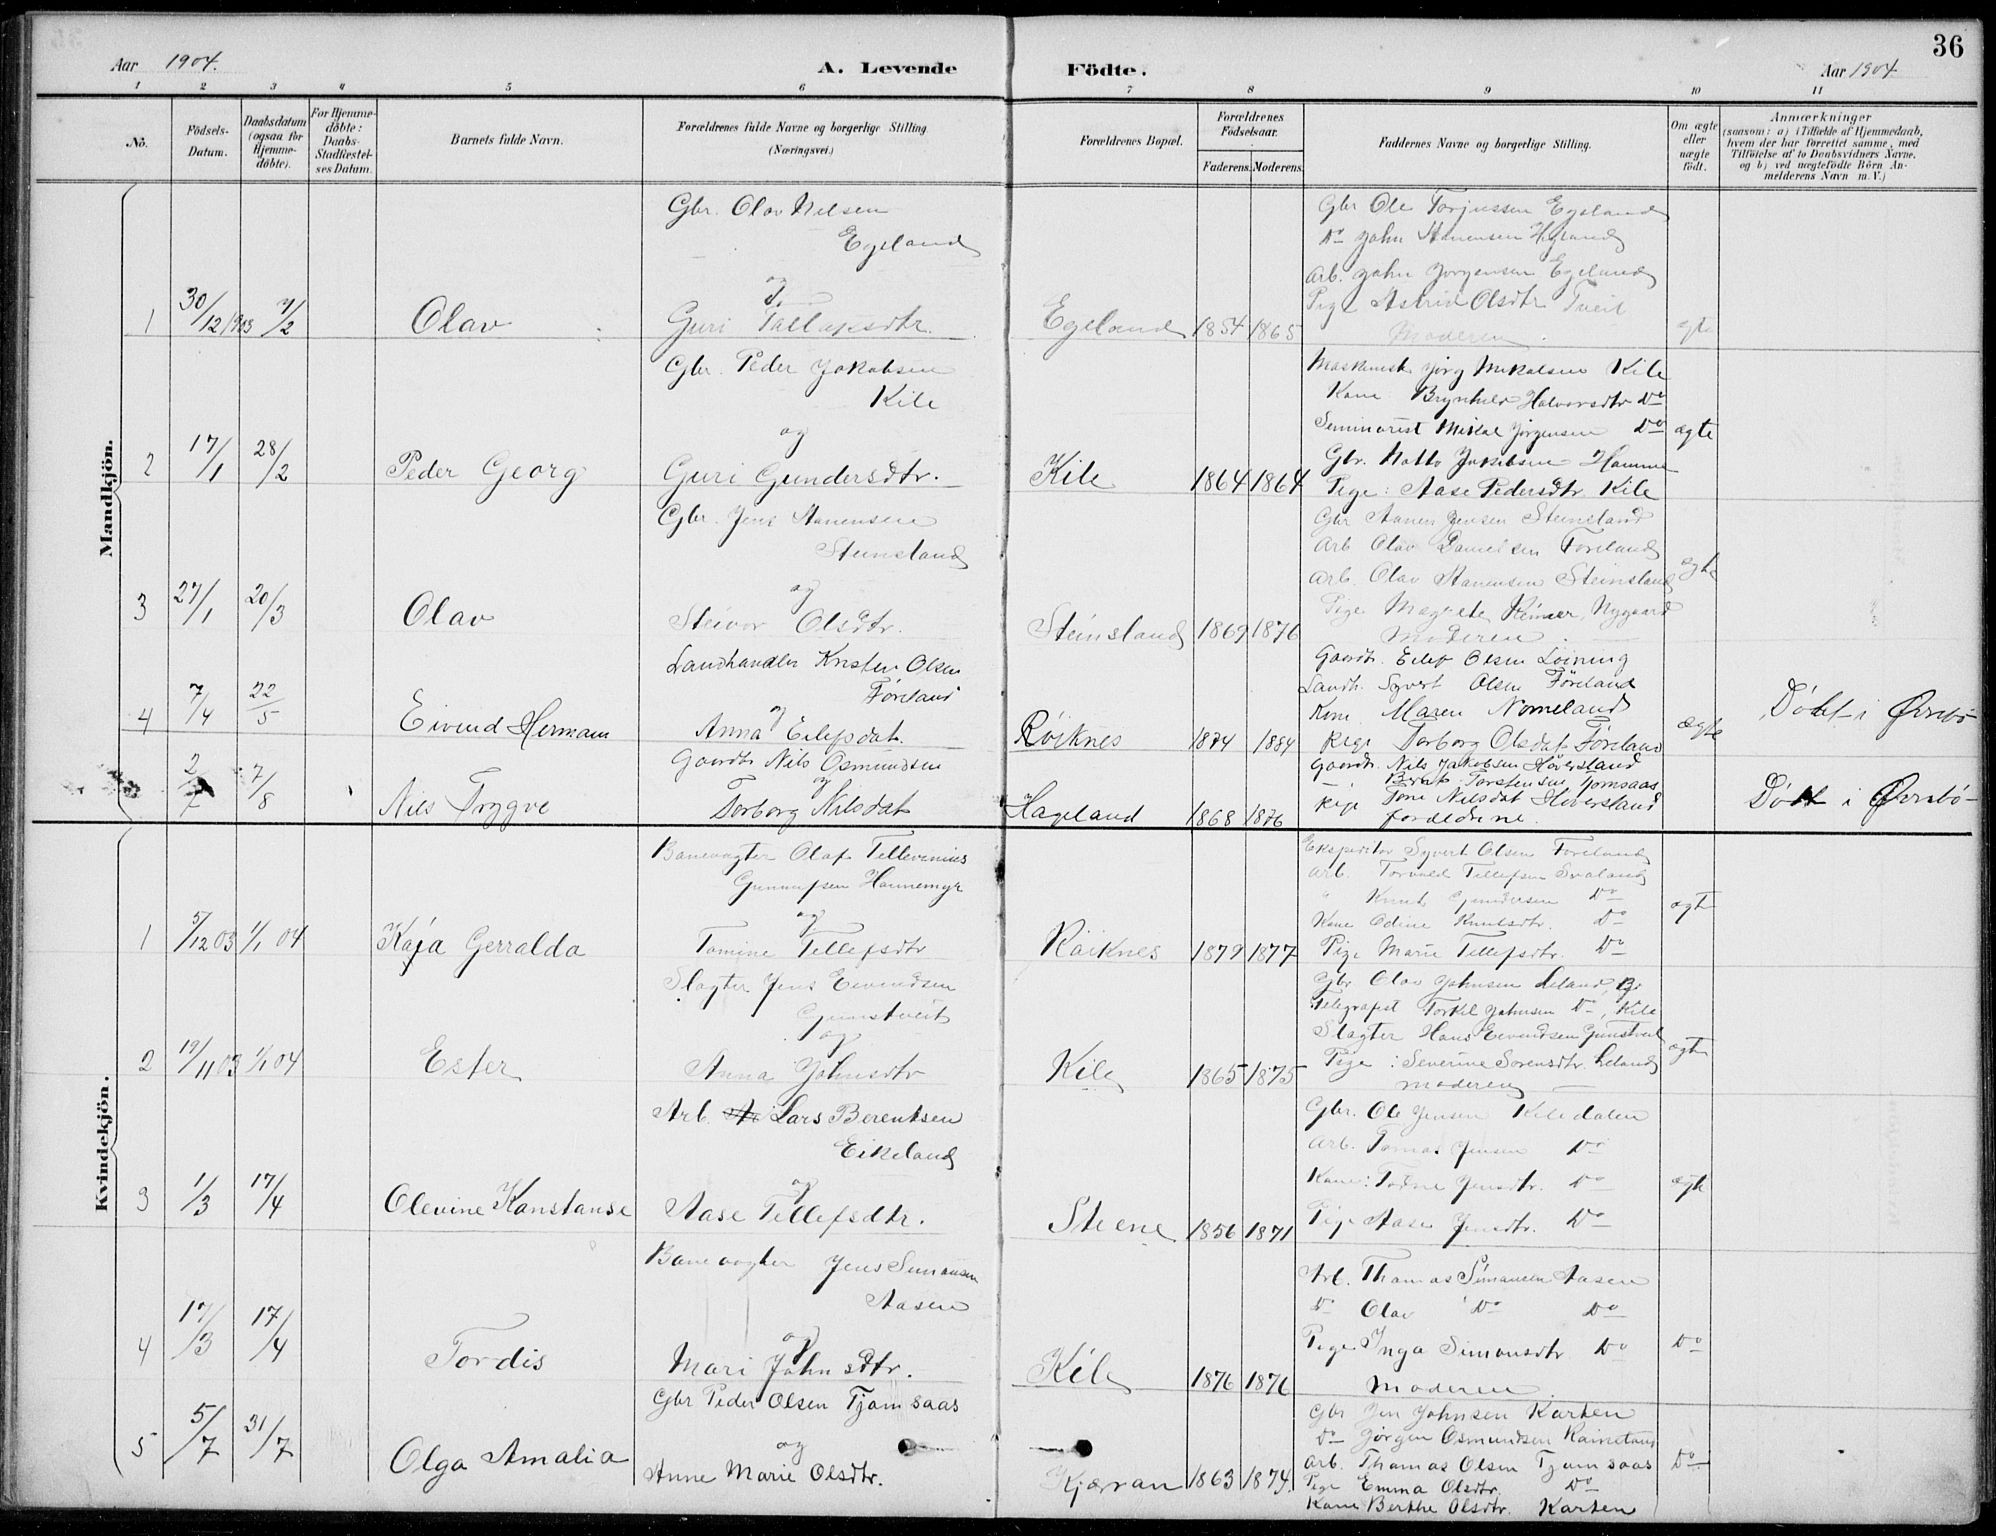 36
Aar 1904. A. Levende Födte. Aar 1904
1 2 3 4 5 6 7 8 9 10 11
No.
Födsels-Datum.
Daabsdatum (ogsaa for Hjemme-döbte).
For Hjemme-döbte: Daabs-Stadfæstel-ses Datum.
Barnets fulde Navn.
Forældrenes fulde Navne og borgerlige Stilling (Næringsvei.)
Forældrenes Bopæl.
Forældrenes Födselsaar.
Faderens. Moderens.
Faddernes Navne og borgerlige Stilling.
Om ægte eller uægte födt.
Anmærkninger
(saasom: a) i Tilfælde af Hjemmedaab,
hvem der har forrettet samme, med
Tilföielse af to Daabsvidners Navne,
og b) ved uægtefödte Börn An-
melderens Navn m. V.)
Mandkjön.
Gbr. Olav Nilsen
Egeland
og
1 30/12 1903 7/2 Olav Guri Tallaksdtr. Egeland 1854 1865
Gbr Ole Torjussen Egeland
Do John Aanensen
Arb. John Jørgensen Egeland
Pige Astrid Olsdtr Tveit
Moderen
ægte
Gbr. Peder Jakobsen
Kile
og
2 17/1 28/2 Peder Georg Guri Gundersdtr. Kile 1864 1864
Jørg Mikalsen Kile
Kone Brynhild Halvorsdtr Do
Seminarist Mikal Jørgensen Do
Gbr. Jakobsen Homme
Pige: Aase Pedersdtr Kile
ægte
Gbr. Jens Aanensen
Steinsland
og
3 27/1 20/3 Olav Steivor Olsdtr. Steinsland 1869 1876
Gbr Aanen Jensen Steinsland
Arb Olav Danielsen Foreland
Arb. Olav Aanensen Steinsland
Pige Nygaard
Moderen
ægte
Landhandler Kristen Olsen
Føreland
og
4 7/4 22/5 Eivind Herman Anna Eilefsdat. Røiknes 1874 1884
Gaardbr. Eilef Olsen Løining
Landh. Syvert Olsen Føreland
Kone Maren Nomeland
Pige Torborg Olsdat Føreland
ægte
Døbt i Øvrebø
Gaardbr Nils Osmundsen
og
2/7 7/8 Nils Trygve Torborg Nilsdat Hageland 1868 1876
Gaardbr. Nils Jakobsen Høversland
Torstensen Tjomsaas
Pige Tone Nilsdat Høversland
forældrene.
Døbt i Øvrebø
Kvindekjön.
Banevogter Olaf Tellevinius
Gunnufsen Honnemyr
og
1 5/12 03 1/1 04 Kaja Gerralda Tomine Tellefsdtr Røiknes 1879 1877
Ekspeditør Syvert Olsen Foreland
Arb. Torvald Tellefsen
" Knut Gundersen Do
Kone Odine Knutsdtr. Do
Pige Marie Tellefsdtr. Do
ægte
Slagter Jens Eivindsen
Gunstveit
og
2 19/11 03 1/1 04 Ester Anna Johnsdtr Kile 1865 1875
Gbr Olav Johnsen Leland,
Telegrafist Torkel Johnsen Do, Kile
Slagter Hans Eivindsen Gunstveit
Pige: Severine Sørensdtr. Leland
Moderen
ægte
Arb. Lars Berentsen
Eikeland
og
3 1/3 17/4 Olevine Konstanse Aase Tellefsdtr. Steene 1856 1871
Gbr. Ole Jensen Kiledalen
Arb. Tomas Jensen Do
Kone: Jensdtr. Do
Pige Aase Jensdtr. Do
ægte
Banevogter Jens Simonsen
Aasen
og
4 17/3 17/4 Tordis Mari Johnsdtr. Kile 1876 1876
Arb. Thomas Simonsen Aasen
Do Olav Do Do
Pige Inga Simonsdtr Do
Moderen
Do
Gbr Peder Olsen Tjomsaas
og
5 5/7 31/7 Olga Amalia Anne Marie Olsdtr. Kjærran 1863 1874.
Gbr Johnsen Karten
Do Jørgen Osmundsen
Arb. Thomas Olsen Tjomsaas
Pige Emma Olsdtr. Do
Kone Berthe Olsdtr. Karten
Do